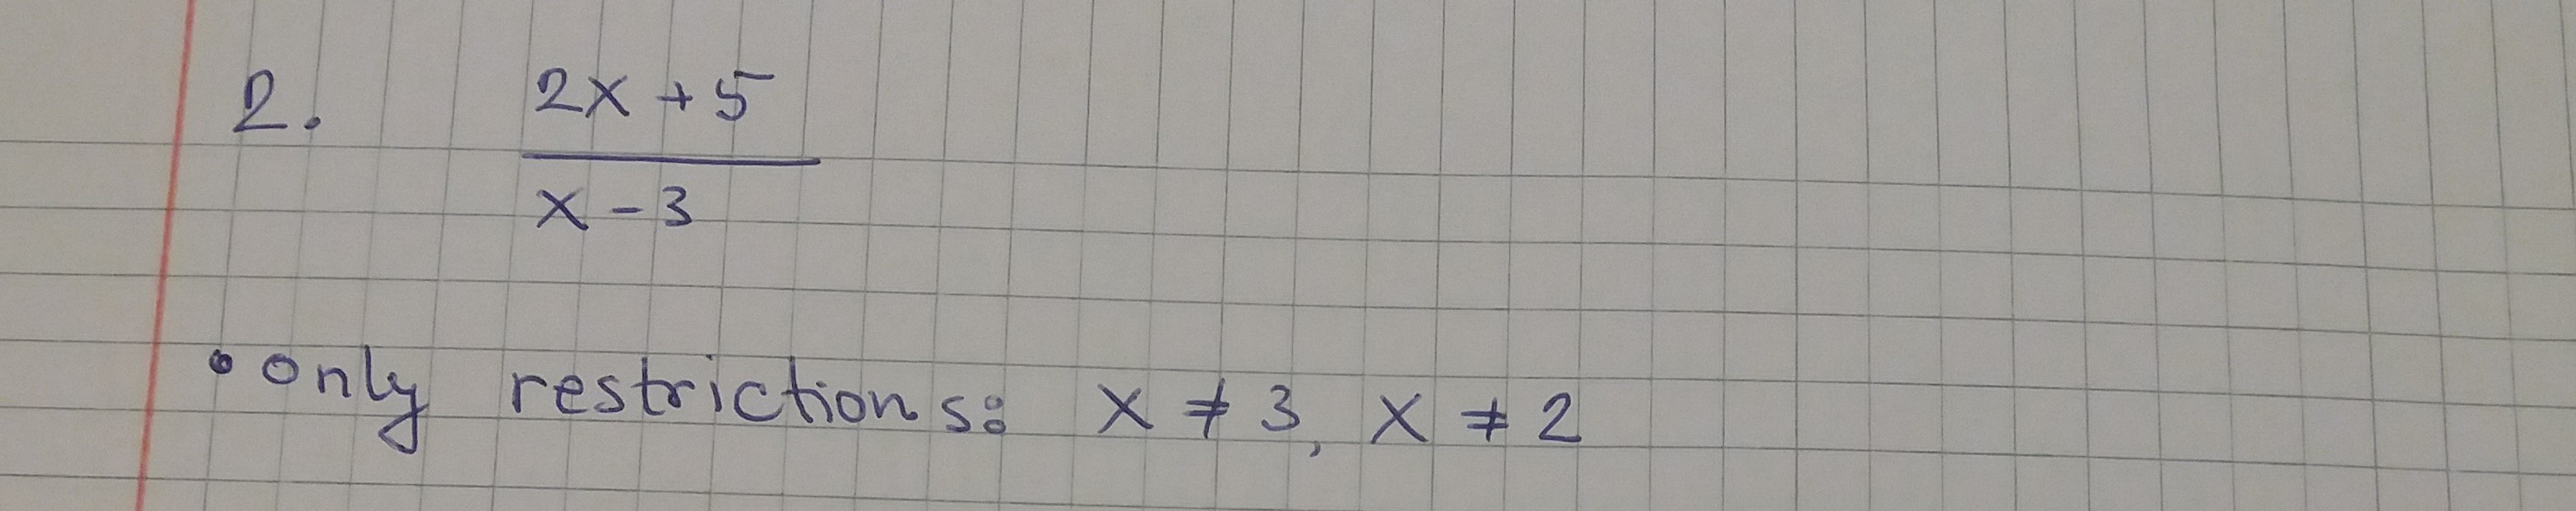 2. 2x + 5
x - 3
• only restrictions: x ≠ 3, x ≠ 2